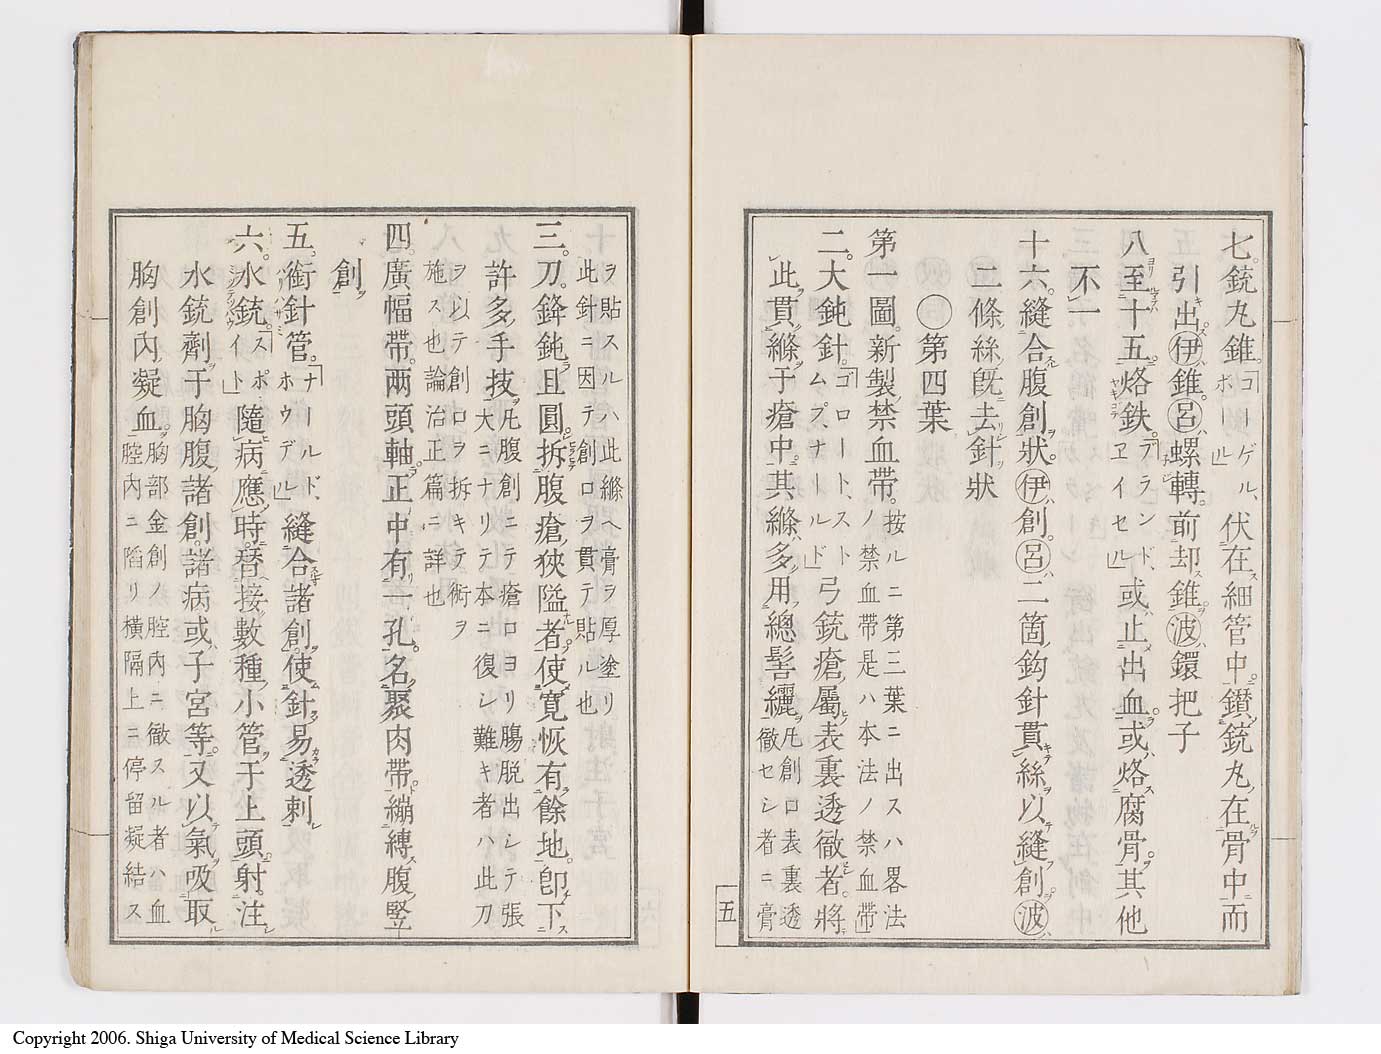 七銃丸錐「コーゲル、ボール」伏在細管中鑚銃丸在骨中而
引出伊錐呂螺轉前却錐波鐶把子
八至十五烙鉄「ブランド、ヱイセル」或止出血或烙腐骨其他
不一
十六縫合腹創状伊創呂二箇鈎針貫絲以縫創波
二條絲既去針状
〇第四葉
第一圖新製禁血帶按ルニ第三葉ニ出スハ畧法ノ禁血帶是ハ本法ノ禁血帶
二大鈍針「ゴロート、ストムプ、ナールド」弓銃瘡屬表裏透徹者將
此貫縧于瘡中其縧多用總髻纚凡創口表裏透徹セシ者ニ膏
五
ヲ貼スルハ此縧ヘ膏ヲ厚塗リ此針ニ因テ創口ヲ貫テ貼ル也
三刀鋒鈍且圓拆腹瘡狹隘者使寛恢有餘地卽下
許多手技凡腹創ニテ瘡口ヨリ腸脱出シテ張大ニナリテ本ニ復シ難キ者ハ此刀
ヲ以テ創口ヲ拆キテ術ヲ施ス也論治正篇ニ詳也
四廣幅帶两頭軸正中有一孔名聚肉帶繃縳腹堅
創
五銜針管「ナールド、ホウデル」縫合諸創使針易透刺
六水銃「スポイト」隨病應時替接數種小管于上頭射注
水銃劑于胸腹諸創諸病或子宮等又以氣吸取
胸創内凝血胸部金創ノ腔内ニ徹スル者ハ血腔内ニ陷リ横隔上ニ停留凝結ス
Copyright 2006. Shiga University of Medical Science Library